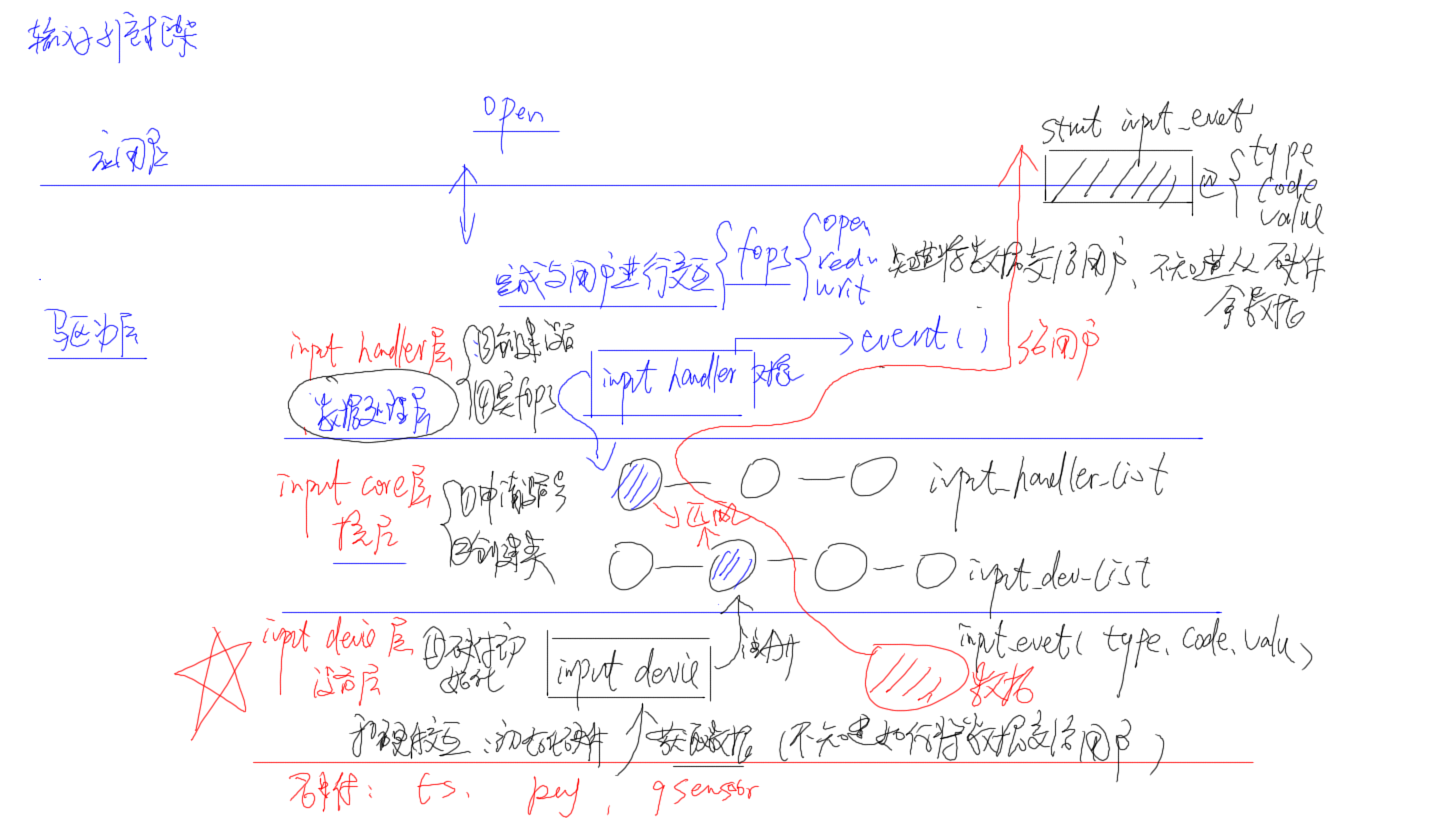 输入子系统框架
open
应用层
struct input_evet
包 type
code
value
完成与用户进行交互 fops open
read
writ
知道将数据交给用户、不知道从硬件
拿数据
驱动层
input handler层
数据处理层
③创建设备
④实fops
input handler 对象
event()
给用户
input core层
核心层
①申请设备号
②创建类
匹配
input_handler_list
input_dev_list
input devie 层
设备层
①硬件初
始化
input devie
注册
input_evet( type、code、valu)
数据
和硬件交互:初始化硬件 获取数据 (不知道如何将数据交给用户)
硬件: ts、 key, gsensor